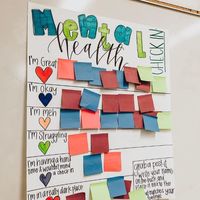 Mental
health
CHECK IN
I'm Great
I'm Okay
I'm meh
I'm Struggling
I'm having a hard
time & wouldn't
mind a check in
I'm in a really dark place
Grab a post-it
& write your name
on the back and
stick it next to